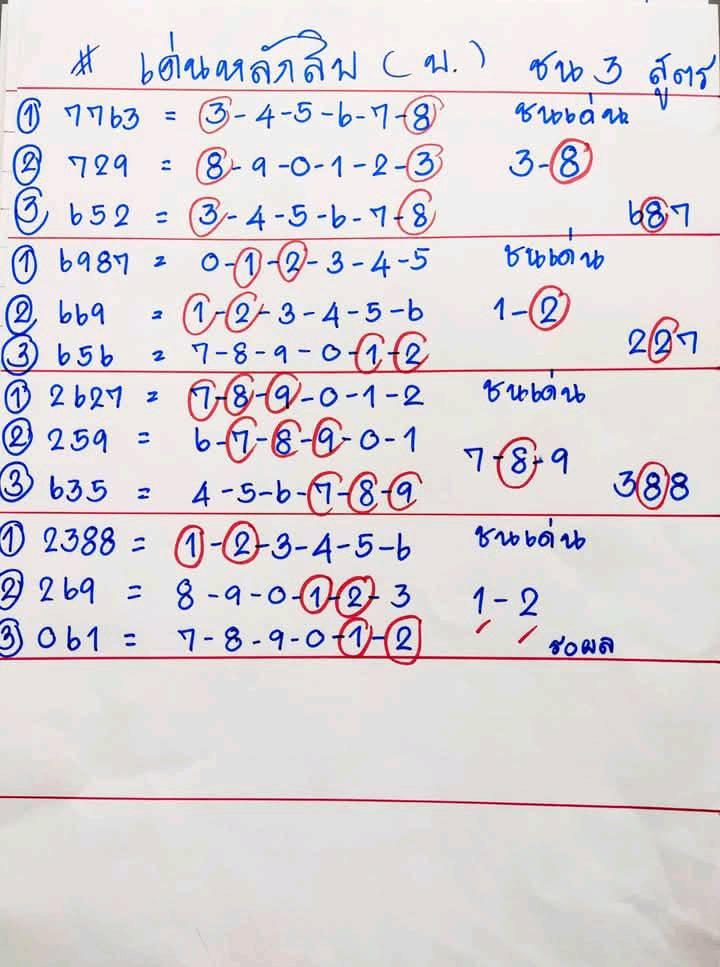 # เด่นหลักสิบ (บ.) ชน 3 สูตร
① 7763 = 3-4-5-6-7-8 ชนเด่น
② 729 = 8-9-0-1-2-3 3-8
③ 652 = 3-4-5-6-7-8 687
① 6987 = 0-1-2-3-4-5 ชนเด่น
② 669 = 1-2-3-4-5-6 1-2
③ 656 = 7-8-9-0-1-2 227
① 2627 = 7-8-9-0-1-2 ชนเด่น
② 259 = 6-7-8-9-0-1 7-8-9
③ 635 = 4-5-6-7-8-9 388
① 2388 = 1-2-3-4-5-6 ชนเด่น
② 269 = 8-9-0-1-2-3 1-2
③ 061 = 7-8-9-0-1-2 รอผล